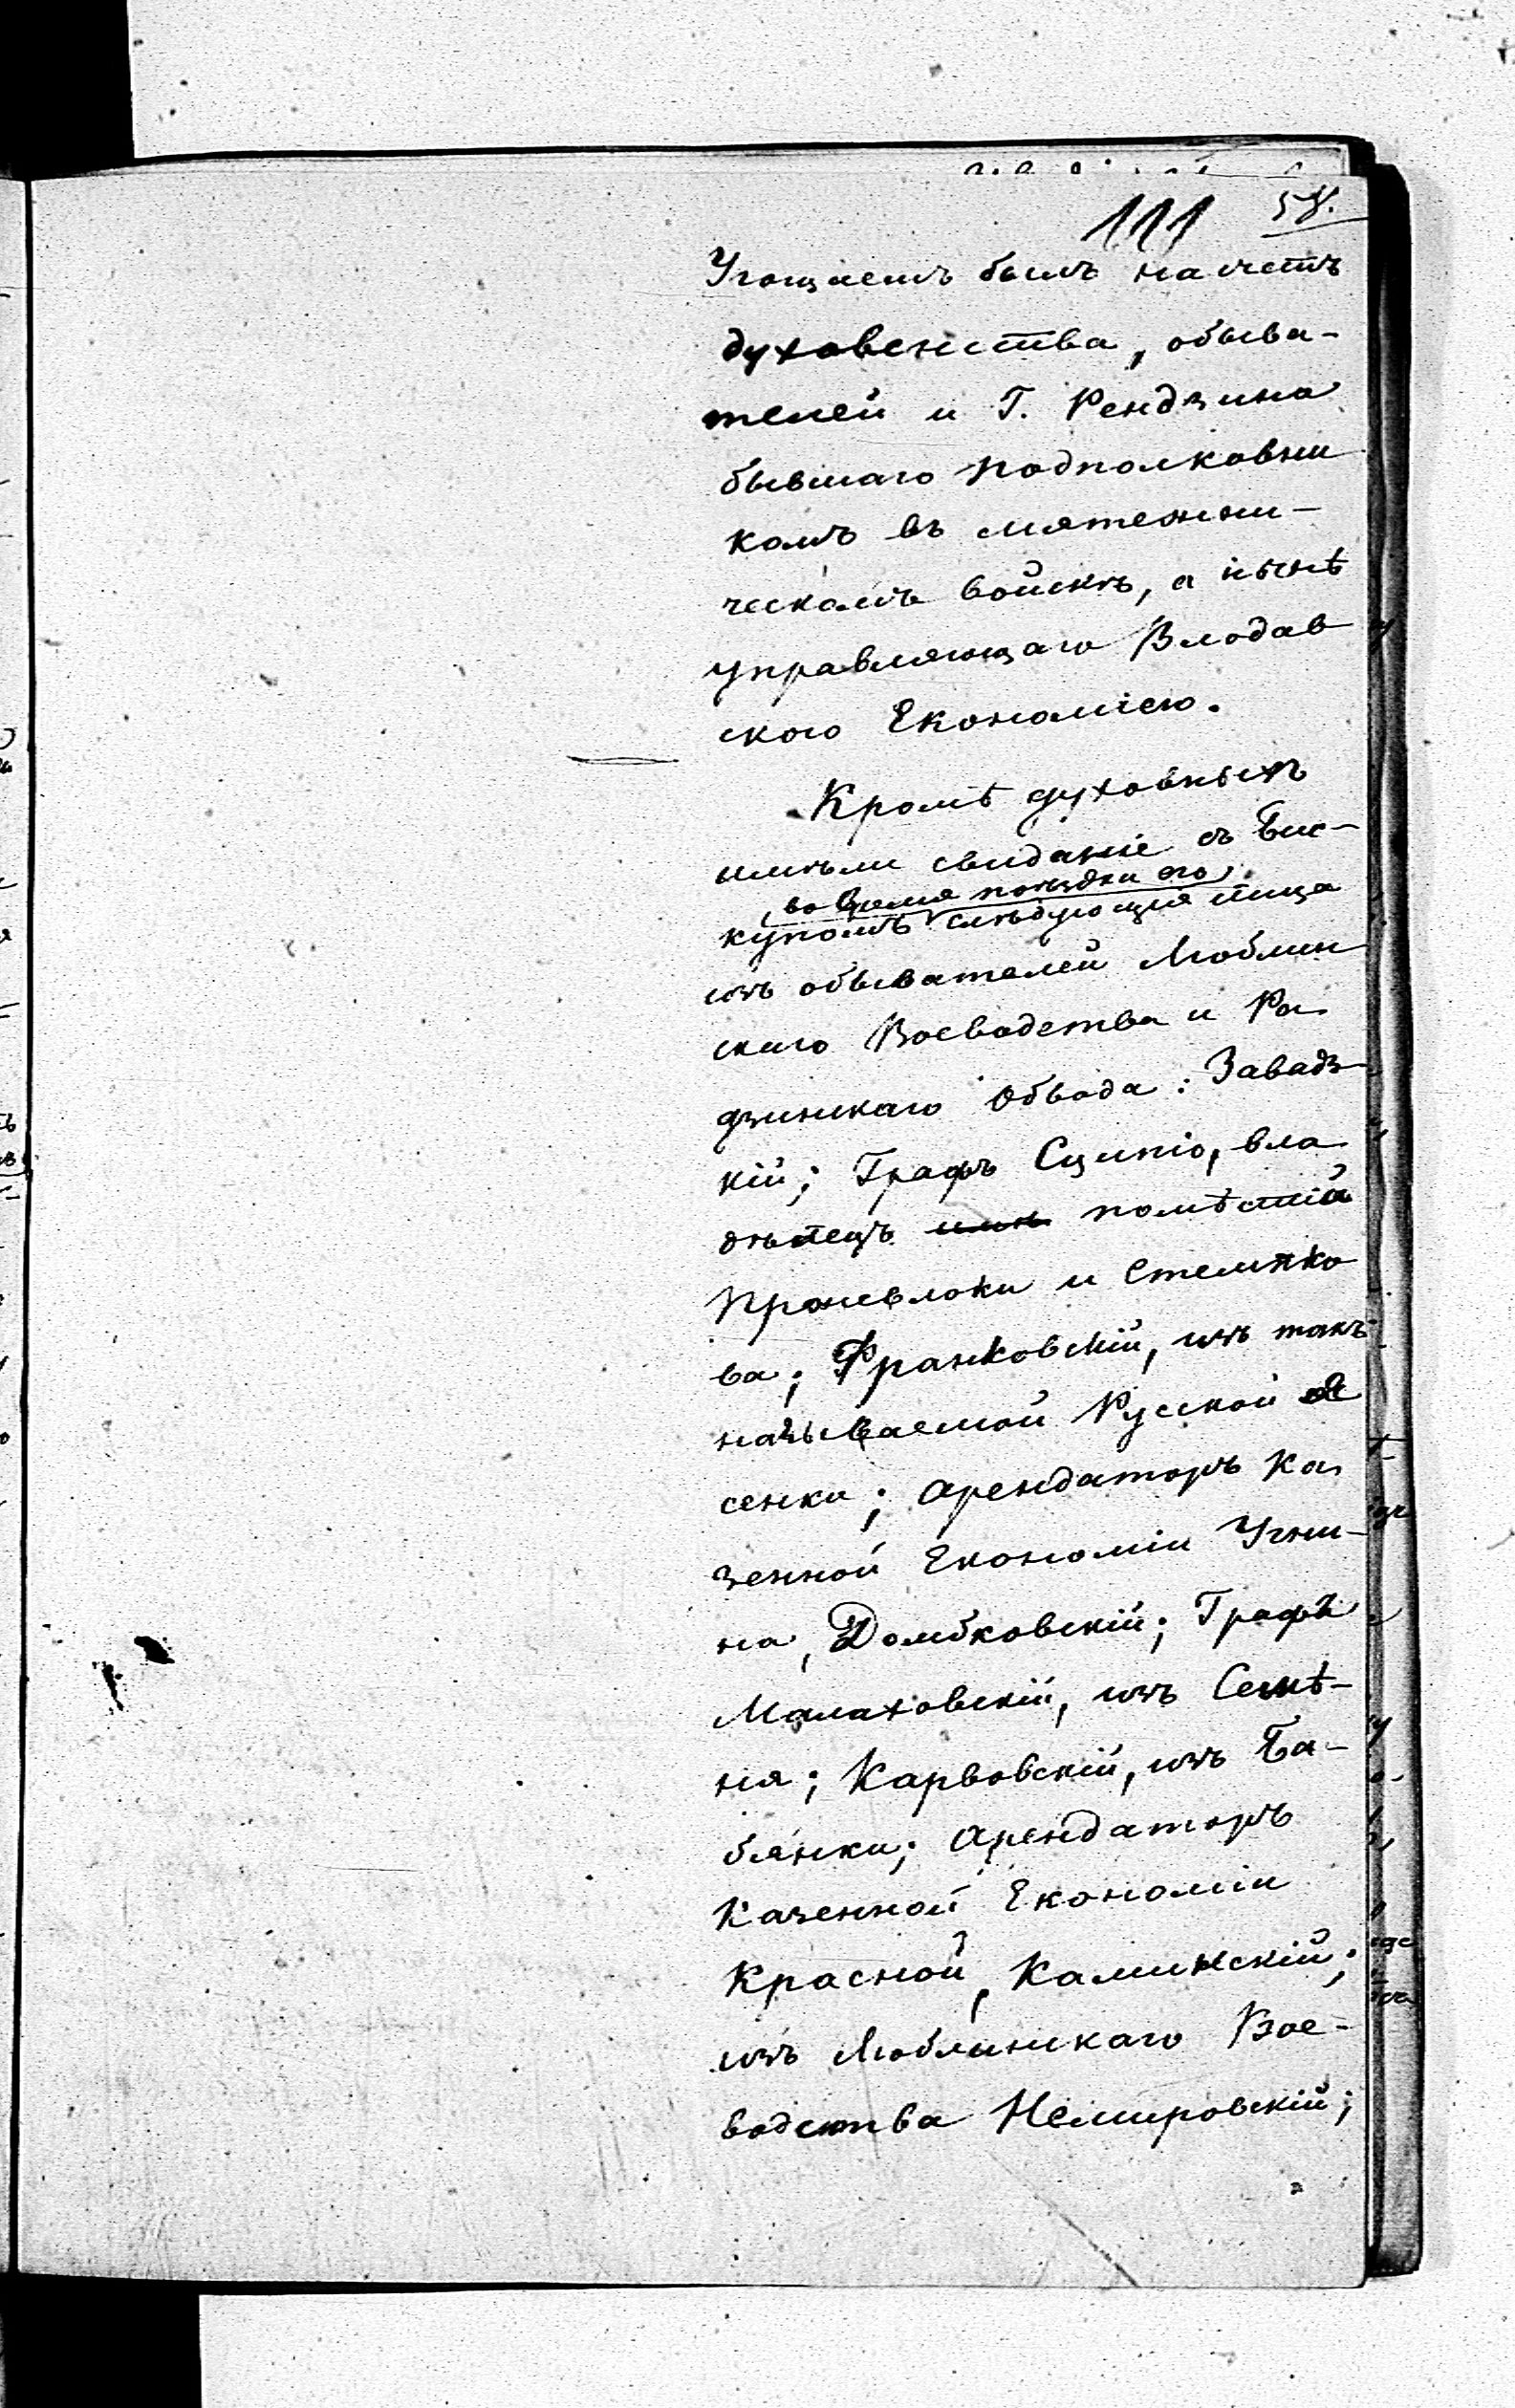 111 58.
Угощаемъ былъ на счетъ
духовенства, обыва-
телей и Г. Рендзина
бывшаго подполковни
комъ въ мятежни-
ческомъ войскѣ, а нынѣ
управляющаго Влодав
скою Економіею.
Кромѣ духовныхъ
имѣли свиданіе съ Бис-
во время поѣздки его
купомъ слѣдующія лица
изъ обывателей Люблин
скаго Воеводства и Ра
дзинскаго Обвода: Завадз-
кій; Графъ Сципіо, вла
дѣлецъ помѣстій
Пржевлоки и Стемпко
ва; Франковскій, изъ такъ
называемой Русской Во
сенки; Арендаторъ Ка
зенной Економіи Угни-
на, Домбковскій; Графъ
Малаховскій, изъ Семѣ-
ня; Карвовскій, изъ Ба-
бянки; Арендаторъ
Казенной Економіи
Красной, Каминскій;
изъ Люблинскаго Вое-
водства Немировскій;